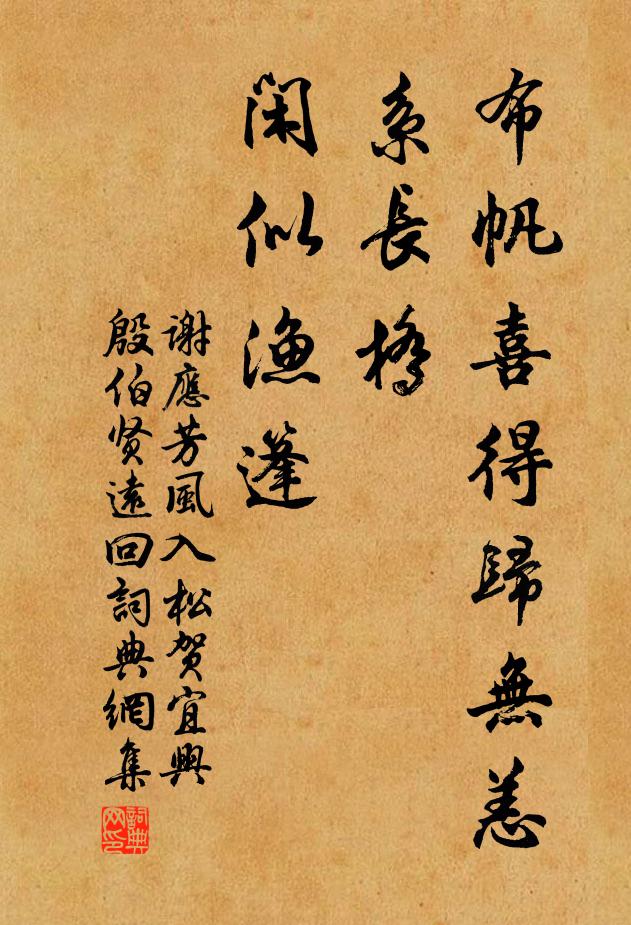 布帆喜得歸無恙
系長橋
閑似漁篷
謝應芳風入松賀宜興
殷伯贤遠回詞典網集
詞典网印